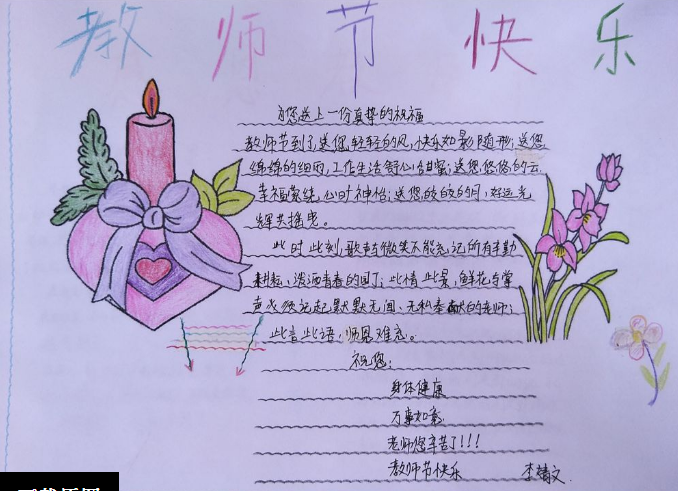 教师节快乐
为您送上一份真挚的祝福
教师节到了,送您轻轻的风,快乐如影随形;送您
绵绵的细雨,工作生活舒心甜蜜;送您悠悠的云,
幸福萦绕,心旷神怡;送您皎皎的月,好运光
辉共摇曳。
此时此刻,歌声与微笑不能忘记所有辛勤
耕耘、泼洒青春的园丁;此情此景,鲜花与掌
声必须记起默默无闻、无私奉献的老师;
此言此语,师恩难忘。
祝您:
身体健康
万事如意
老师您辛苦了!!!
教师节快乐 李婧文